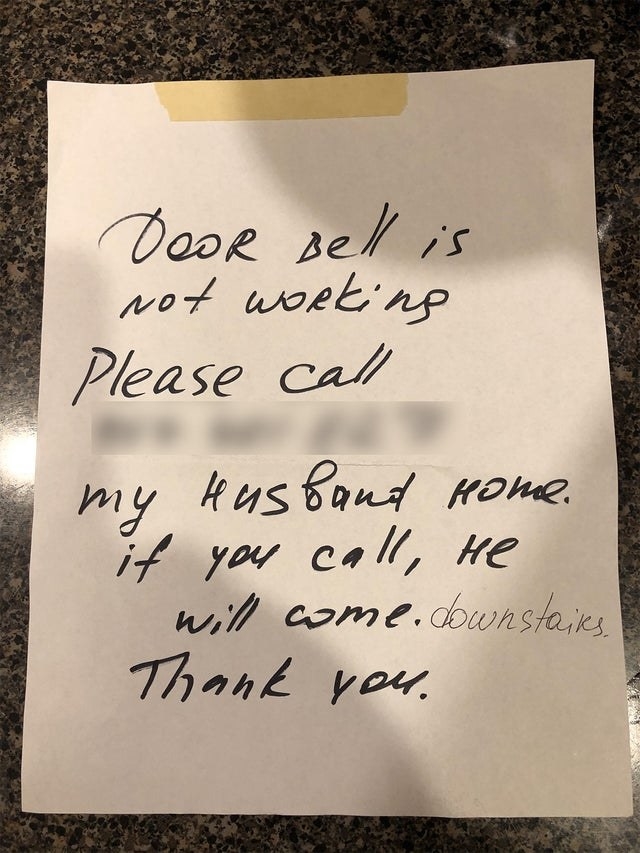 DOOR Bell is
Not working
Please call
my Husband Home.
if you call, He
will come. downstairs.
Thank you.